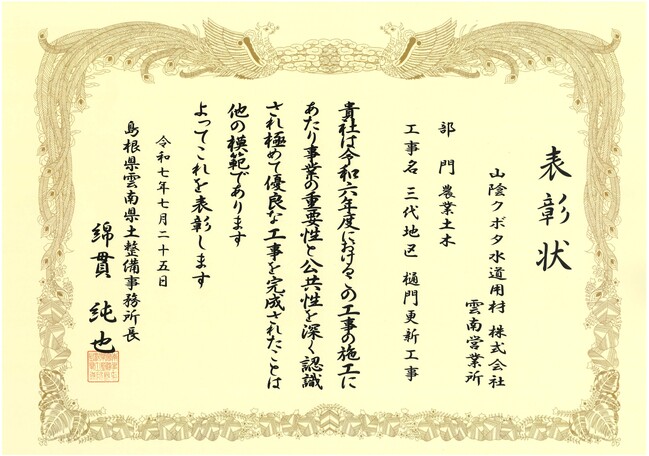 表彰状
山陰クボタ水道用材 株式会社
雲南営業所
部 門 農業土木
工事名 三代地区 樋門更新工事
貴社は令和六年度におけるこの工事の施工に
あたり事業の重要性と公共性を深く認識
され極めて優良な工事を完成されたことは
他の模範であります
よってこれを表彰します
令和七年七月二十五日
島根県雲南県土整備事務所長
綿貫 純也